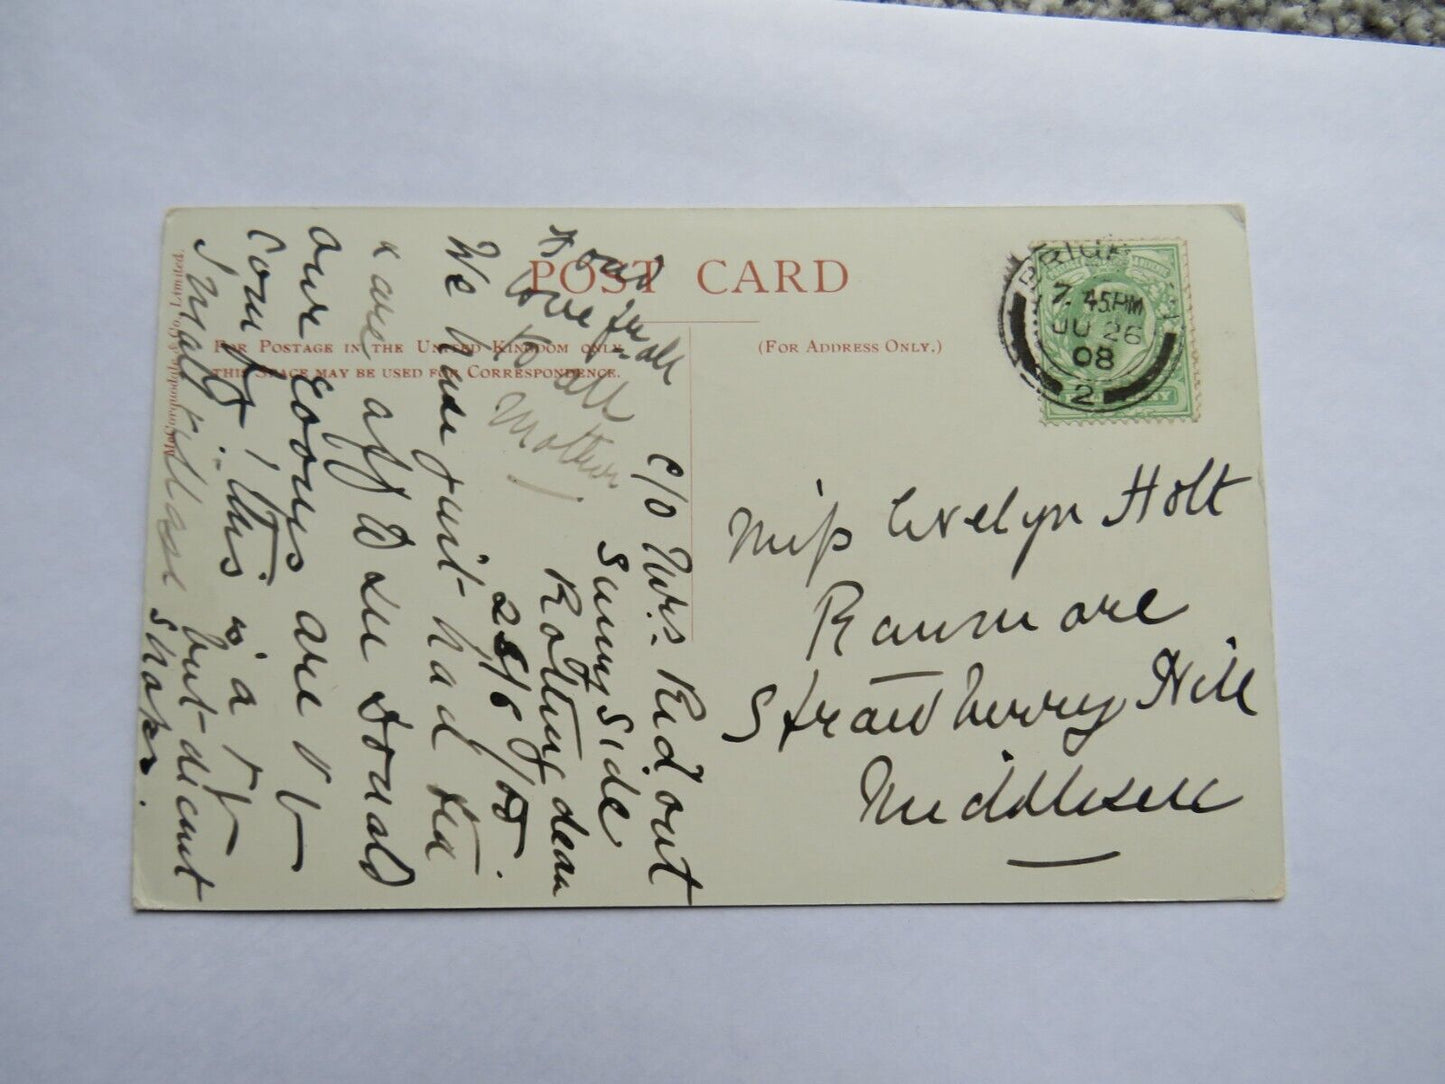 POST CARD
FOR POSTAGE IN THE UNITED KINGDOM ONLY
THIS SPACE MAY BE USED FOR CORRESPONDENCE.
(FOR ADDRESS ONLY.)
McCorquodale & Co. Limited.
7.45PM
JU 26
08
2
Miss Evelyn Holt
Ranmore
Strawberry Hill
Middlesex
c/o Mrs. Ridout
Sunny Side
Rottingdean
/6/08.
We have just had tea
& are off to see Donald
our rooms are v
comft, this is a v
small village but decent
shops.
love
to all
Mother